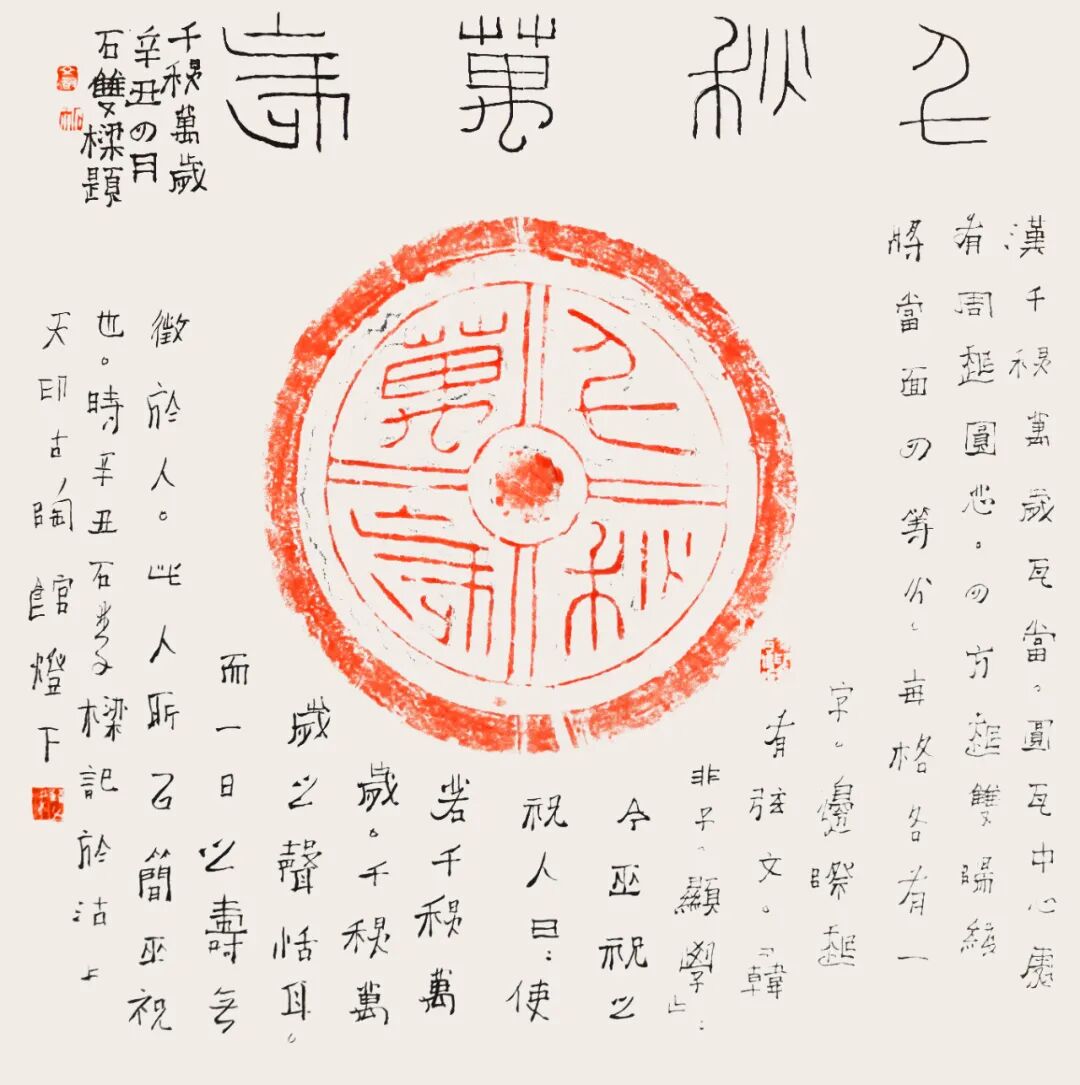 千秋萬歲
千秋萬歲
辛丑四月
石雙樑題
千秋萬歲
漢千秋萬歲瓦當。圓瓦中心處
有周起圓芯。四方起雙陽線
將當面四等分,每格各有一
字。邊際起
有弦文。《韓
非子。顯學》:
今巫祝之
祝人曰:使
若千秋萬
歲。千秋萬
歲之聲恬耳。
而一日之壽無
徵於人。此人所以簡巫祝
也。時辛丑石樑記於沽上
天印古陶館燈下